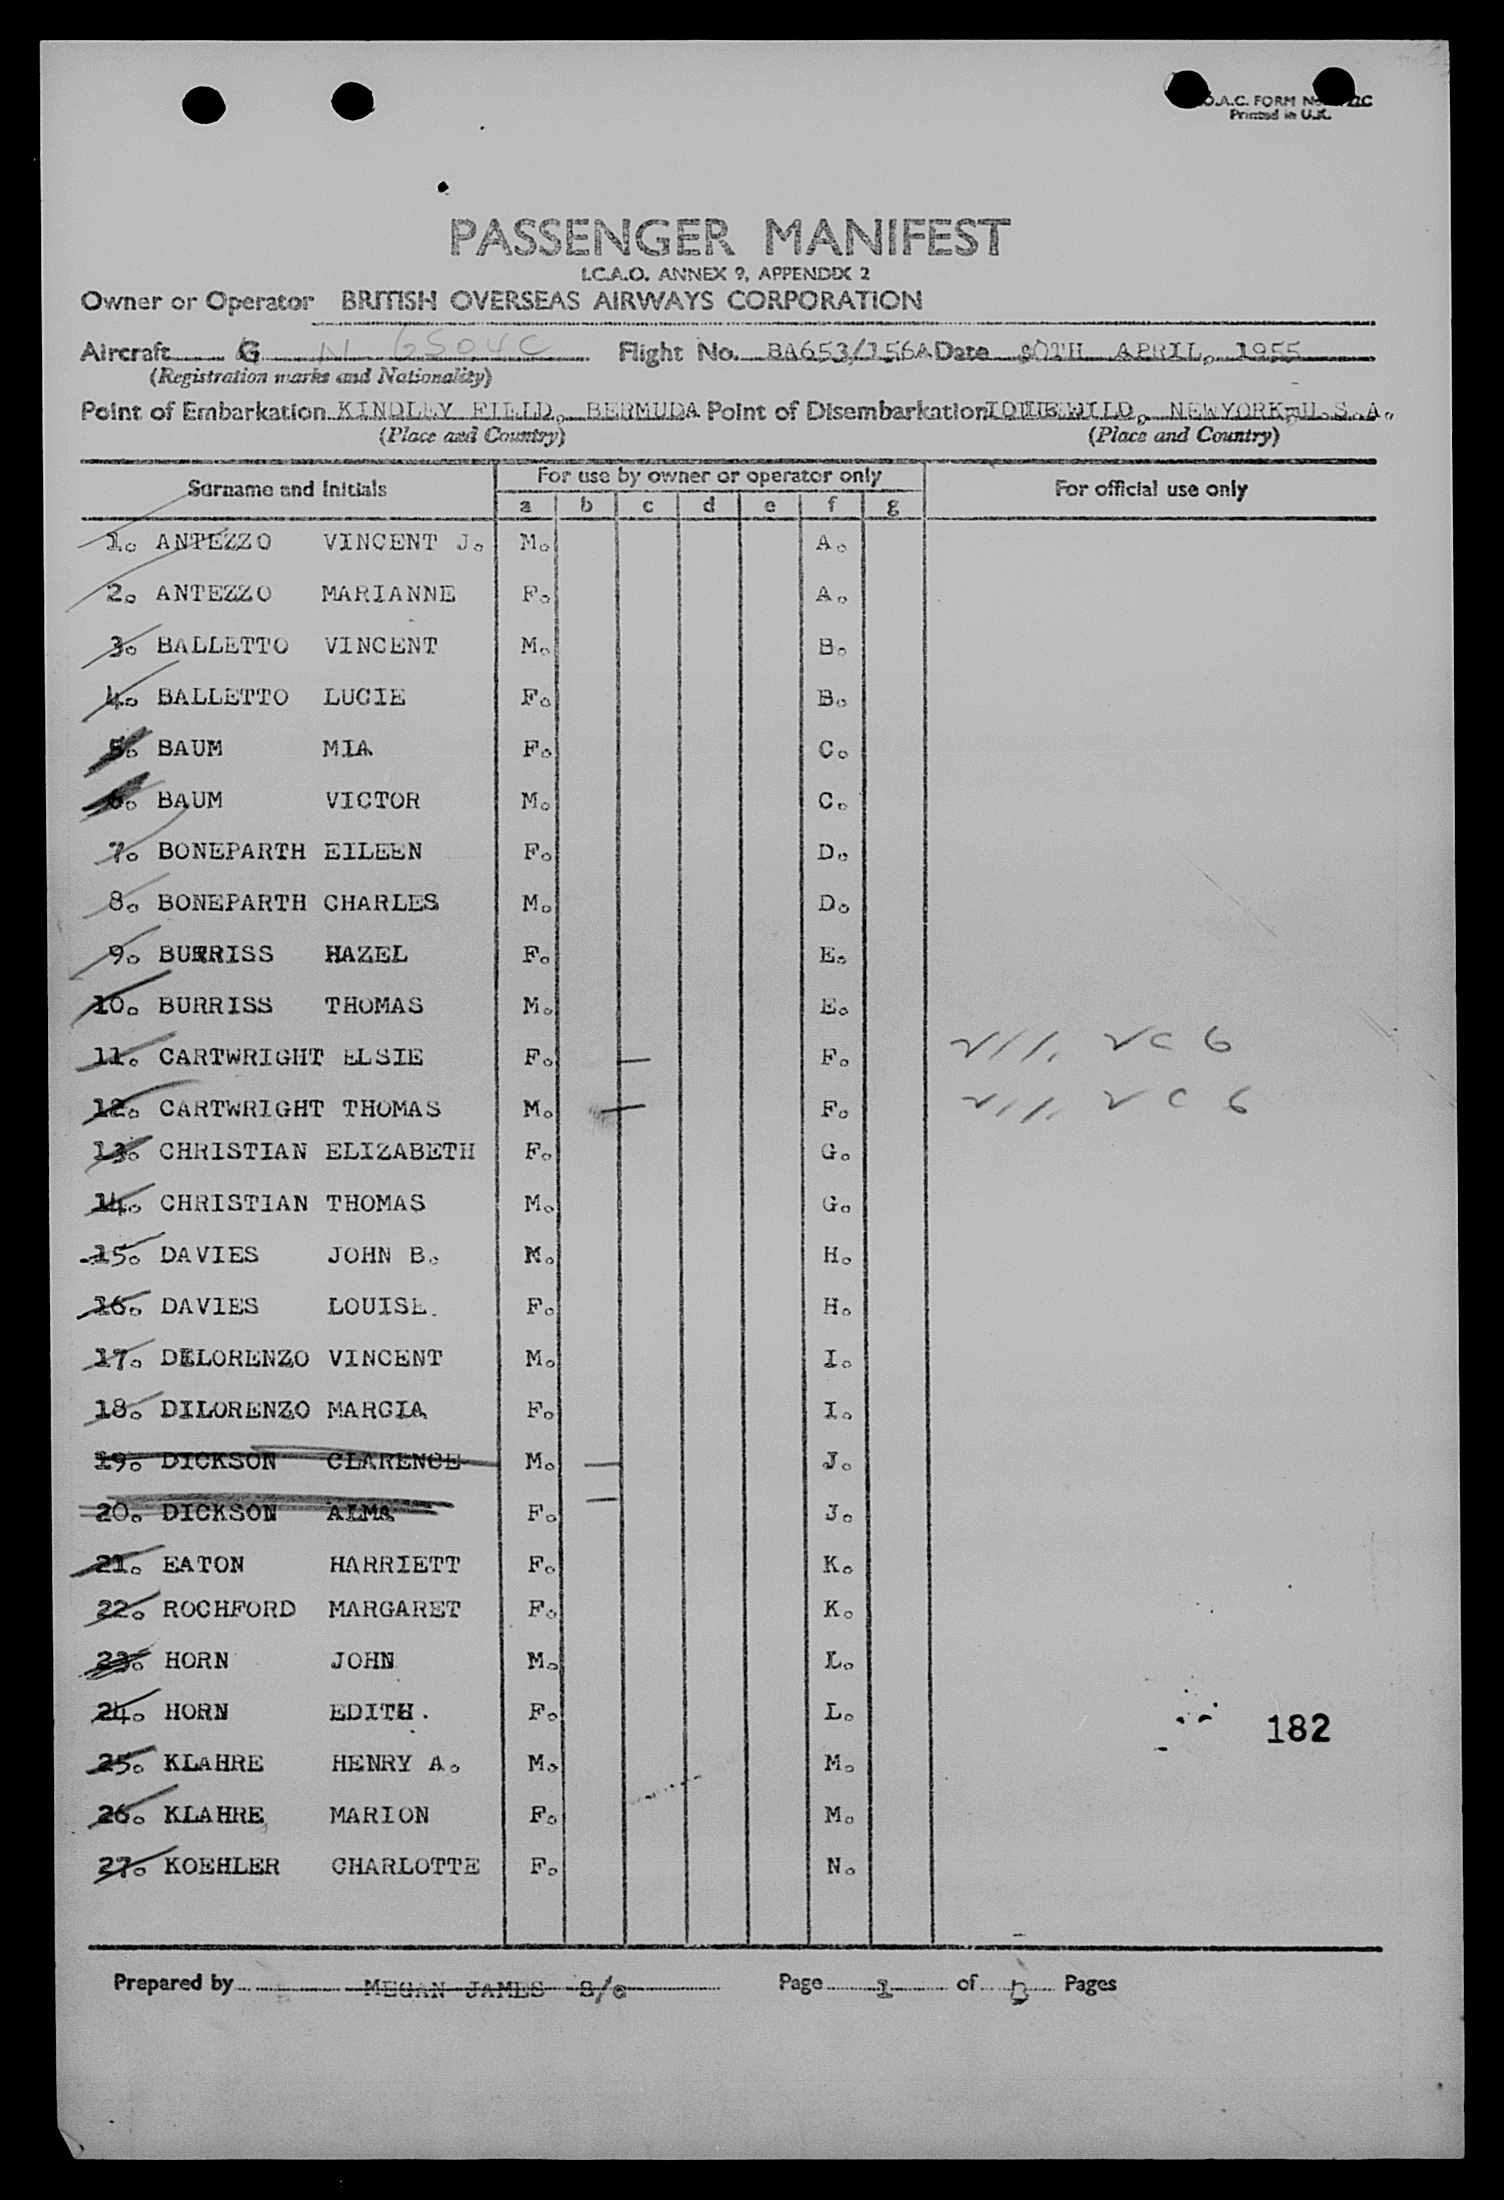 O.A.C. FORM No. 
Printed in U.K.
PASSENGER MANIFEST
I.C.A.O. ANNEX 9, APPENDIX 2
Owner or Operator BRITISH OVERSEAS AIRWAYS CORPORATION
Aircraft G N 6504C Flight No. BA653/156A Date 30TH APRIL, 1955
(Registration marks and Nationality)
Point of Embarkation KINDLEY FIELD, BERMUDA Point of Disembarkation IDLEWILD, NEWYORK, U.S.A.
(Place and Country) (Place and Country)
Surname and Initials For use by owner or operator only For official use only
a b c d e f g
1. ANTEZZO VINCENT J. M. A.
2. ANTEZZO MARIANNE F. A.
3. BALLETTO VINCENT M. B.
4. BALLETTO LUCIE F. B.
5. BAUM MIA F. C.
6. BAUM VICTOR M. C.
7. BONEPARTH EILEEN F. D.
8. BONEPARTH CHARLES M. D.
9. BURRISS HAZEL F. E.
10. BURRISS THOMAS M. E.
11. CARTWRIGHT ELSIE F. F.
12. CARTWRIGHT THOMAS M. F.
13. CHRISTIAN ELIZABETH F. G.
14. CHRISTIAN THOMAS M. G.
15. DAVIES JOHN B. M. H.
16. DAVIES LOUISE. F. H.
17. DILORENZO VINCENT M. I.
18. DILORENZO MARCIA F. I.
19. DICKSON CLARENCE M. J.
20. DICKSON ALMA F. J.
21. EATON HARRIETT F. K.
22. ROCHFORD MARGARET F. K.
23. HORN JOHN M. L.
24. HORN EDITH. F. L.
182
25. KLAHRE HENRY A. M. M.
26. KLAHRE MARION F. M.
27. KOEHLER CHARLOTTE F. N.
Prepared by MEGAN JAMES S/c Page 1 of Pages